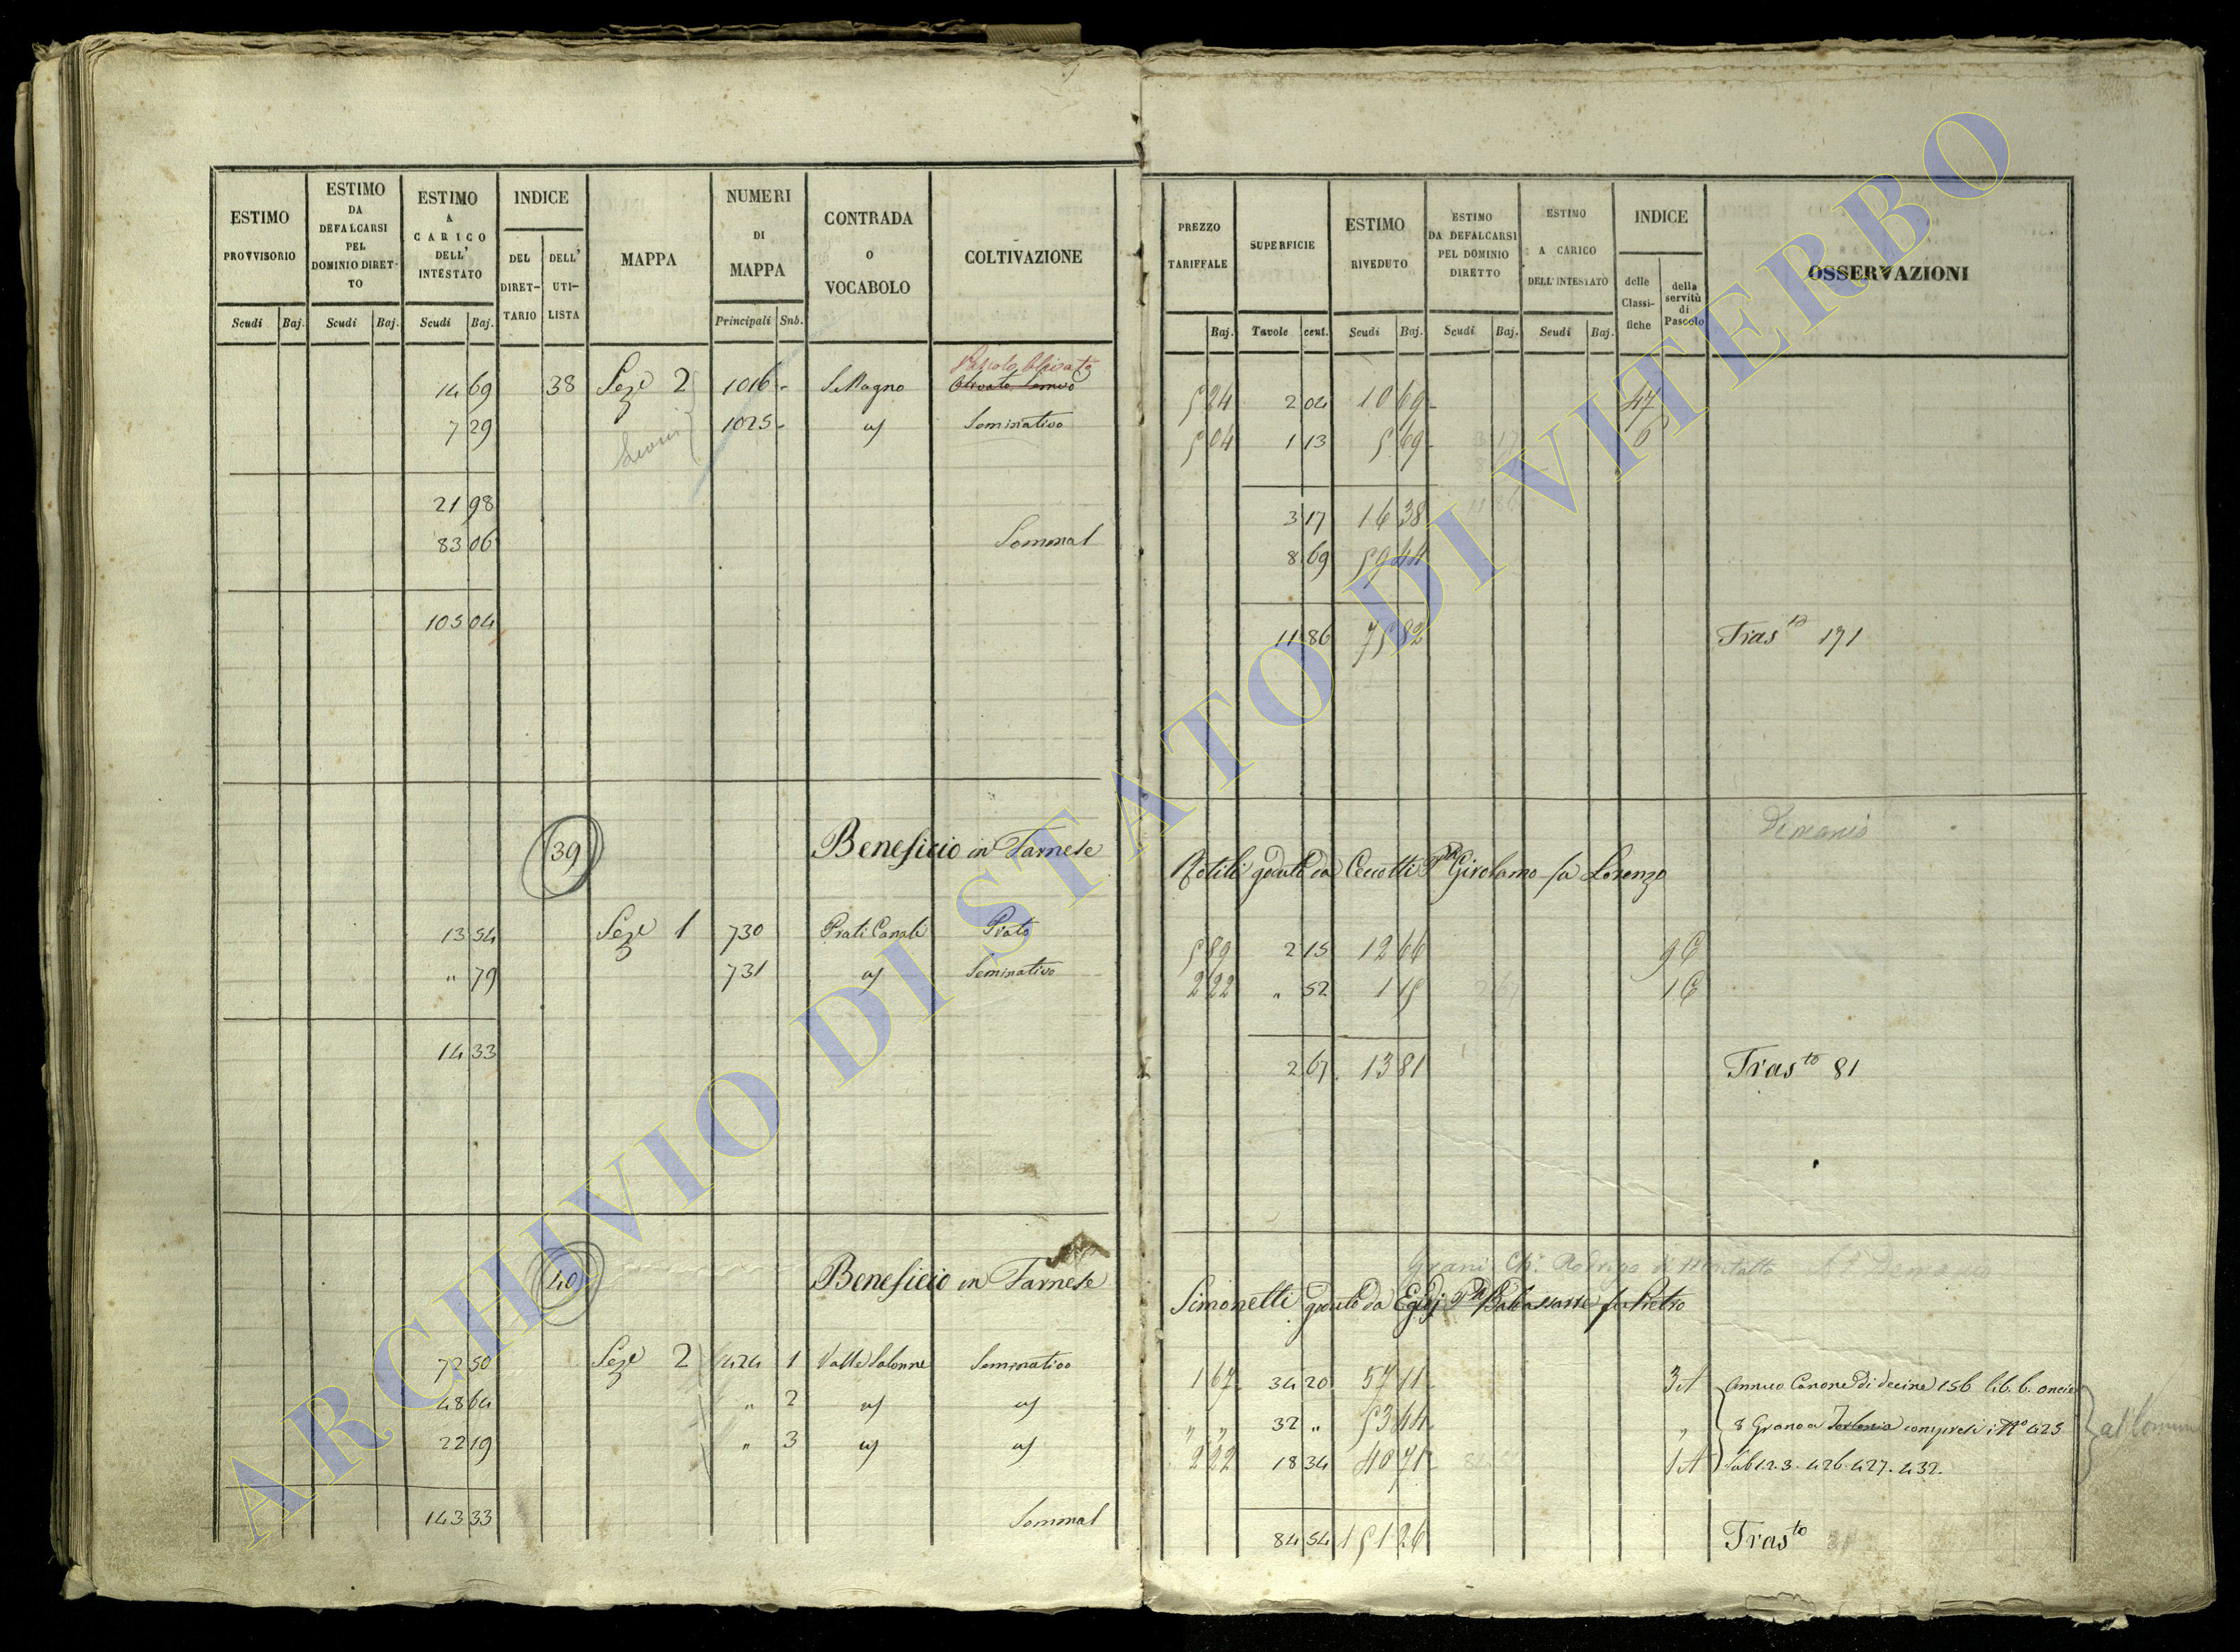 ESTIMO PROVVISORIO
ESTIMO DA DEFALCARSI PEL DOMINIO DIRET-TO
ESTIMO A CARICO DELL' INTESTATO
INDICE
DEL DIRET-TARIO
DELL' UTI-LISTA
MAPPA
NUMERI DI MAPPA
CONTRADA O VOCABOLO
COLTIVAZIONE
Scudi Baj. Scudi Baj. Scudi Baj. Principali Sub.
PREZZO TARIFFALE
SUPERFICIE
ESTIMO RIVEDUTO
ESTIMO DA DEFALCARSI PEL DOMINIO DIRETTO
ESTIMO A CARICO DELL' INTESTATO
INDICE
delle Classi-fiche
della servitù di Pascolo
OSSERVAZIONI
Baj. Tavole cent. Scudi Baj. Scudi Baj. Scudi Baj.
Pascolo Olivato
14 69 38 Seze 2 1016 - S. Magno Olivato 5 24 2 04 10 69 47
7 29 1025 - uf Seminativo 5 04 1 13 5 69 6
21 98 3 17 16 38
83 06 Sommal 8 69 59 44
105 04 11 86 75 82 Tras to 171
39 Beneficio in Farnese
Demanio
Rotili goduto da Ceccotti Girolamo fu Lorenzo
13 54 Seze 1 730 Prati Canali Prato 5 89 2 15 12 66 9 C
" 79 731 uf Seminativo 2 22 " 52 1 15 1 C
14 33 2 67 13 81 Tras to 81
40 Beneficio in Farnese
Simonetti goduto da Egidj Baldassarre fu Pietro
72 50 Seze 2 424 1 Valle Salonne Seminativo 1 67 34 20 57 11 3 A Annuo Canone di decine 156 lib. 6. oncie
48 64 " 2 uf uf " " 32 " 53 44 " 8 Grano a compresi i No 425
22 19 " 3 uf uf 2 22 18 34 40 71 1 A Sub 1.2.3. 426. 427. 432.
143 33 Sommal 84 54 151 26 Tras to
ARCHIVIO DI STATO DI VITERBO